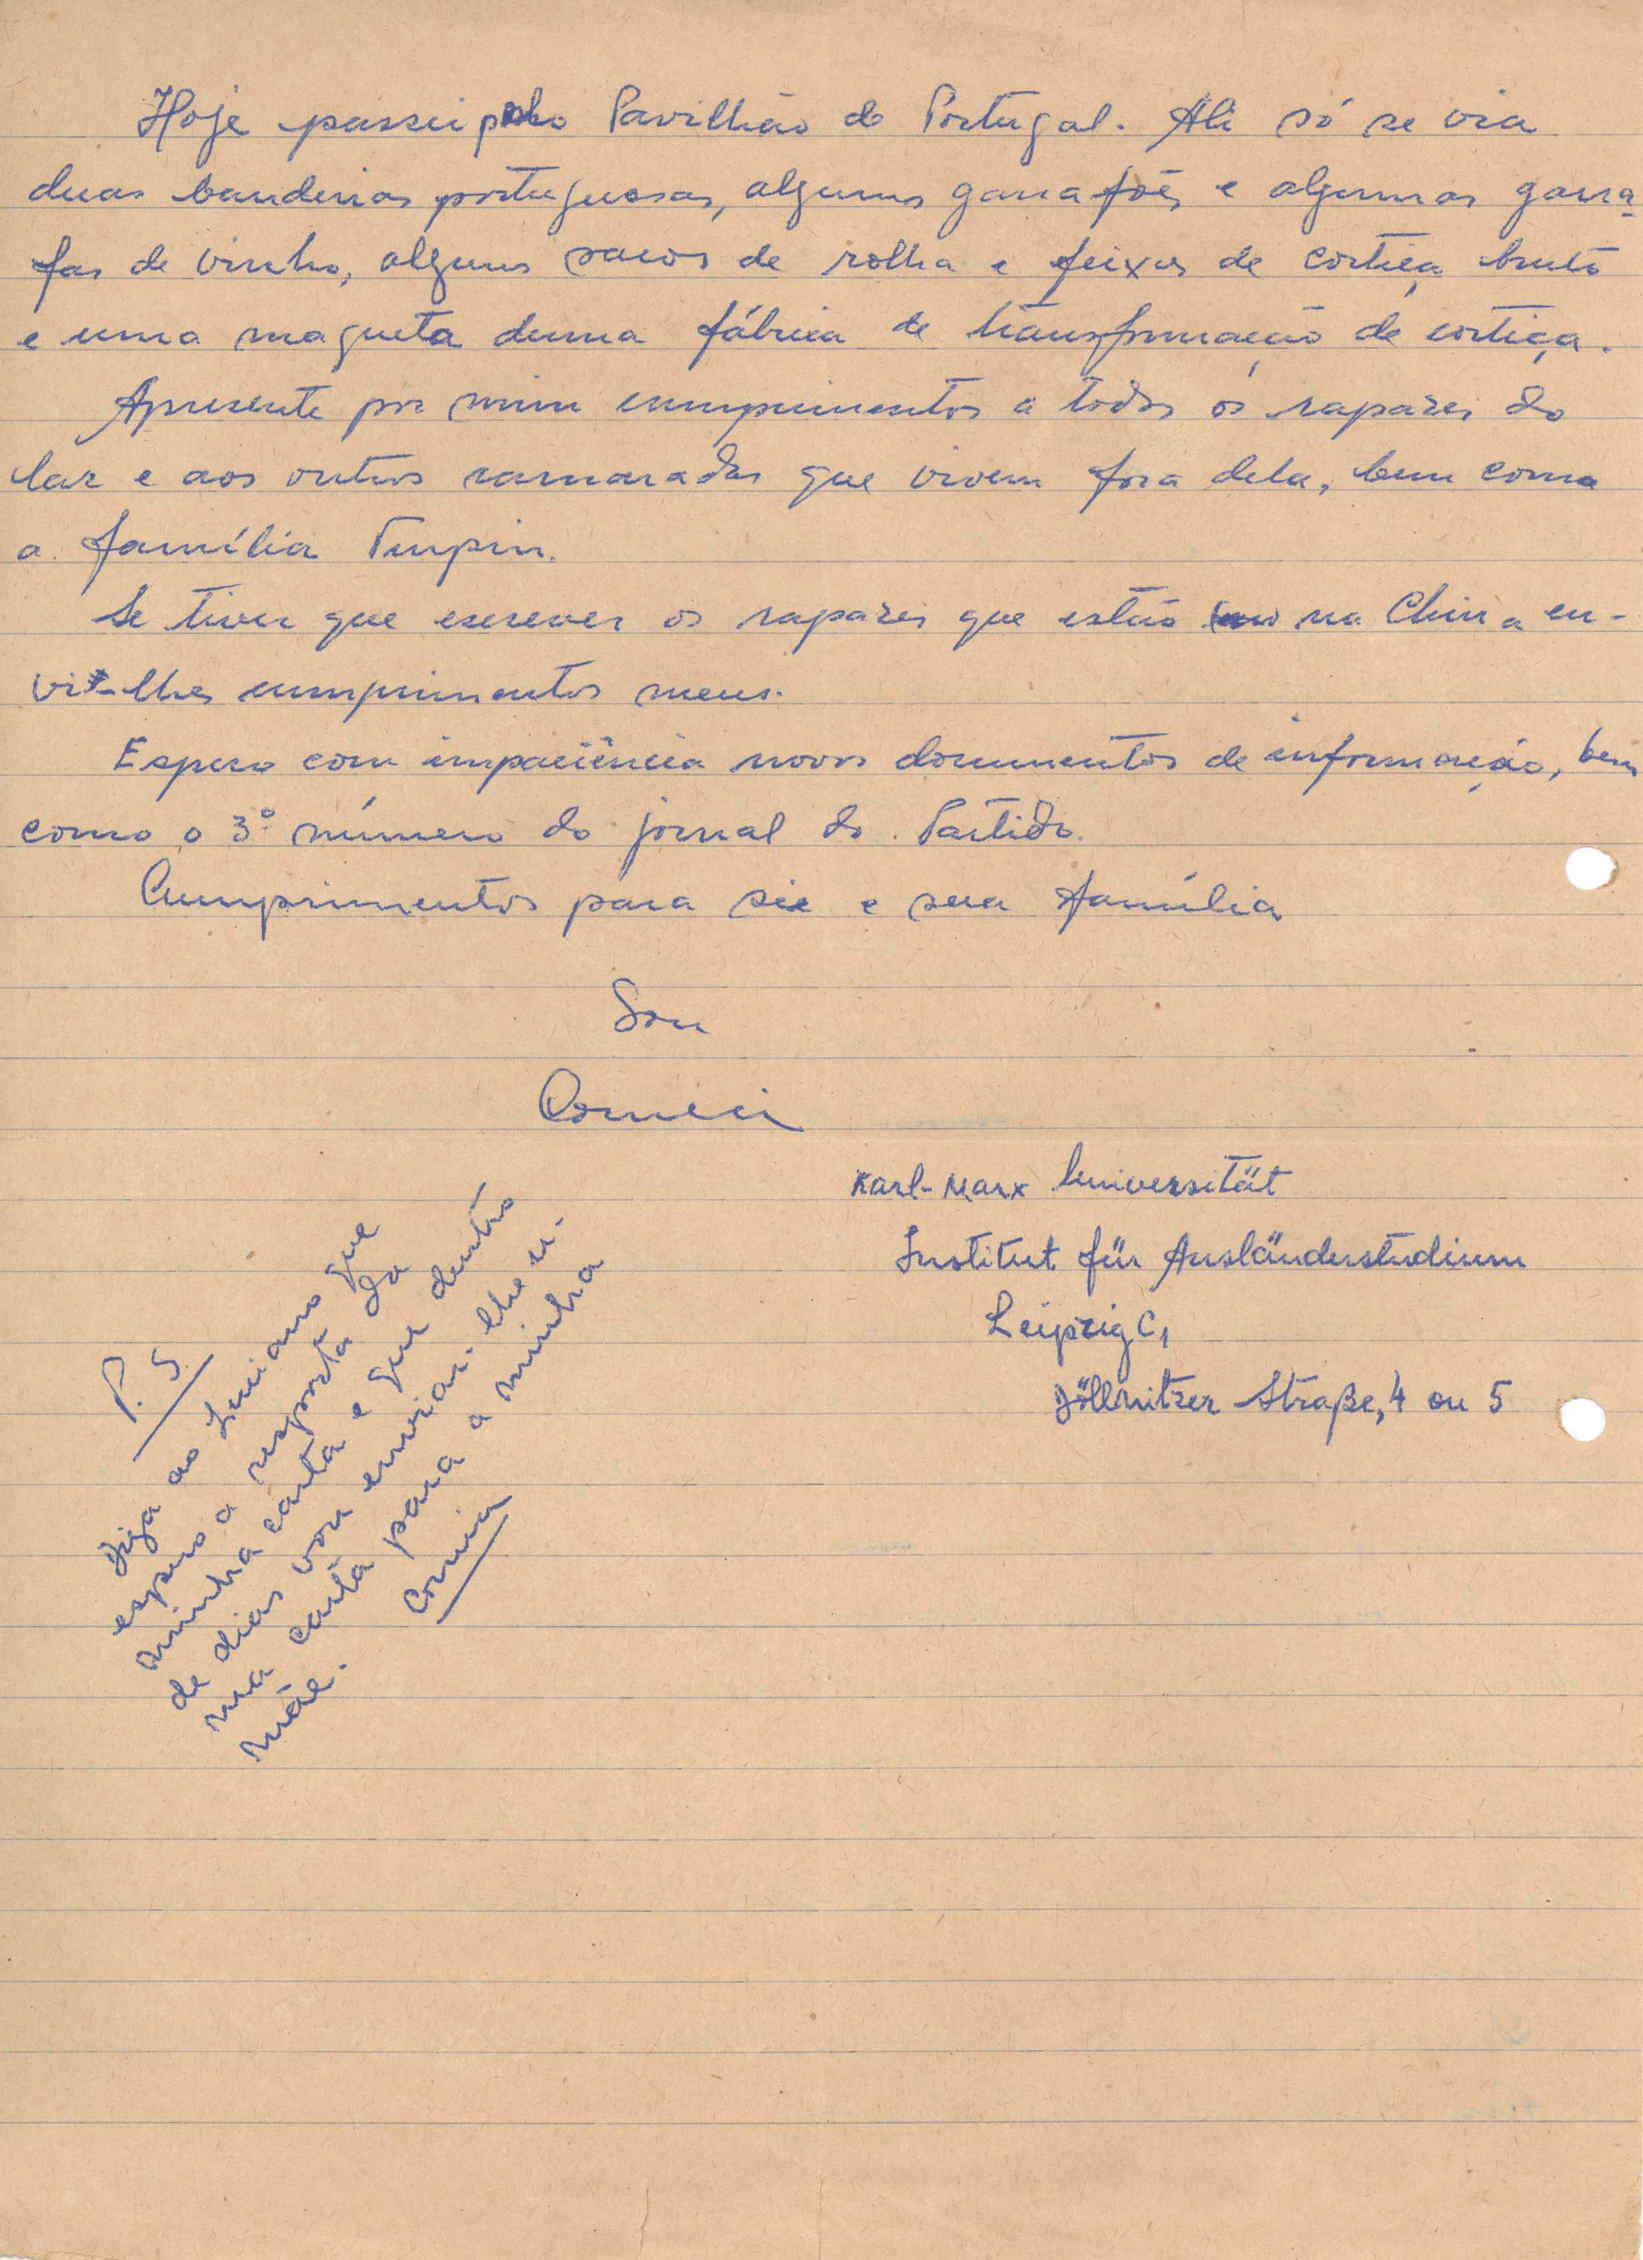 Hoje passei pelo Pavilhão de Portugal. Ali só se via
duas bandeiras portuguesas, alguns garrafões e algumas garra-
fas de vinho, alguns sacos de rolha e feixes de cortiça bruto
e uma maqueta duma fábrica de transformação de cortiça.
Apresente por mim cumprimentos a todos os rapazes do
lar e aos outros camaradas que vivem fora dela, bem como
a família Turpin.
Se tiver que escrever os rapazes que estão na China en-
vie-lhes cumprimentos meus.
Espero com impaciência novos documentos de informação, bem
como o 3º número do jornal do Partido.
Cumprimentos para si e sua família
Sou
Karl-Marx Universität
Institut für Ausländerstudium
Leipzig C1
Döllnitzer Straße, 4 ou 5
P. S.
Diga ao Luciano que
espero a resposta da
minha carta e que dentro
de dias vou enviar-lhe u-
ma carta para a minha
mãe.